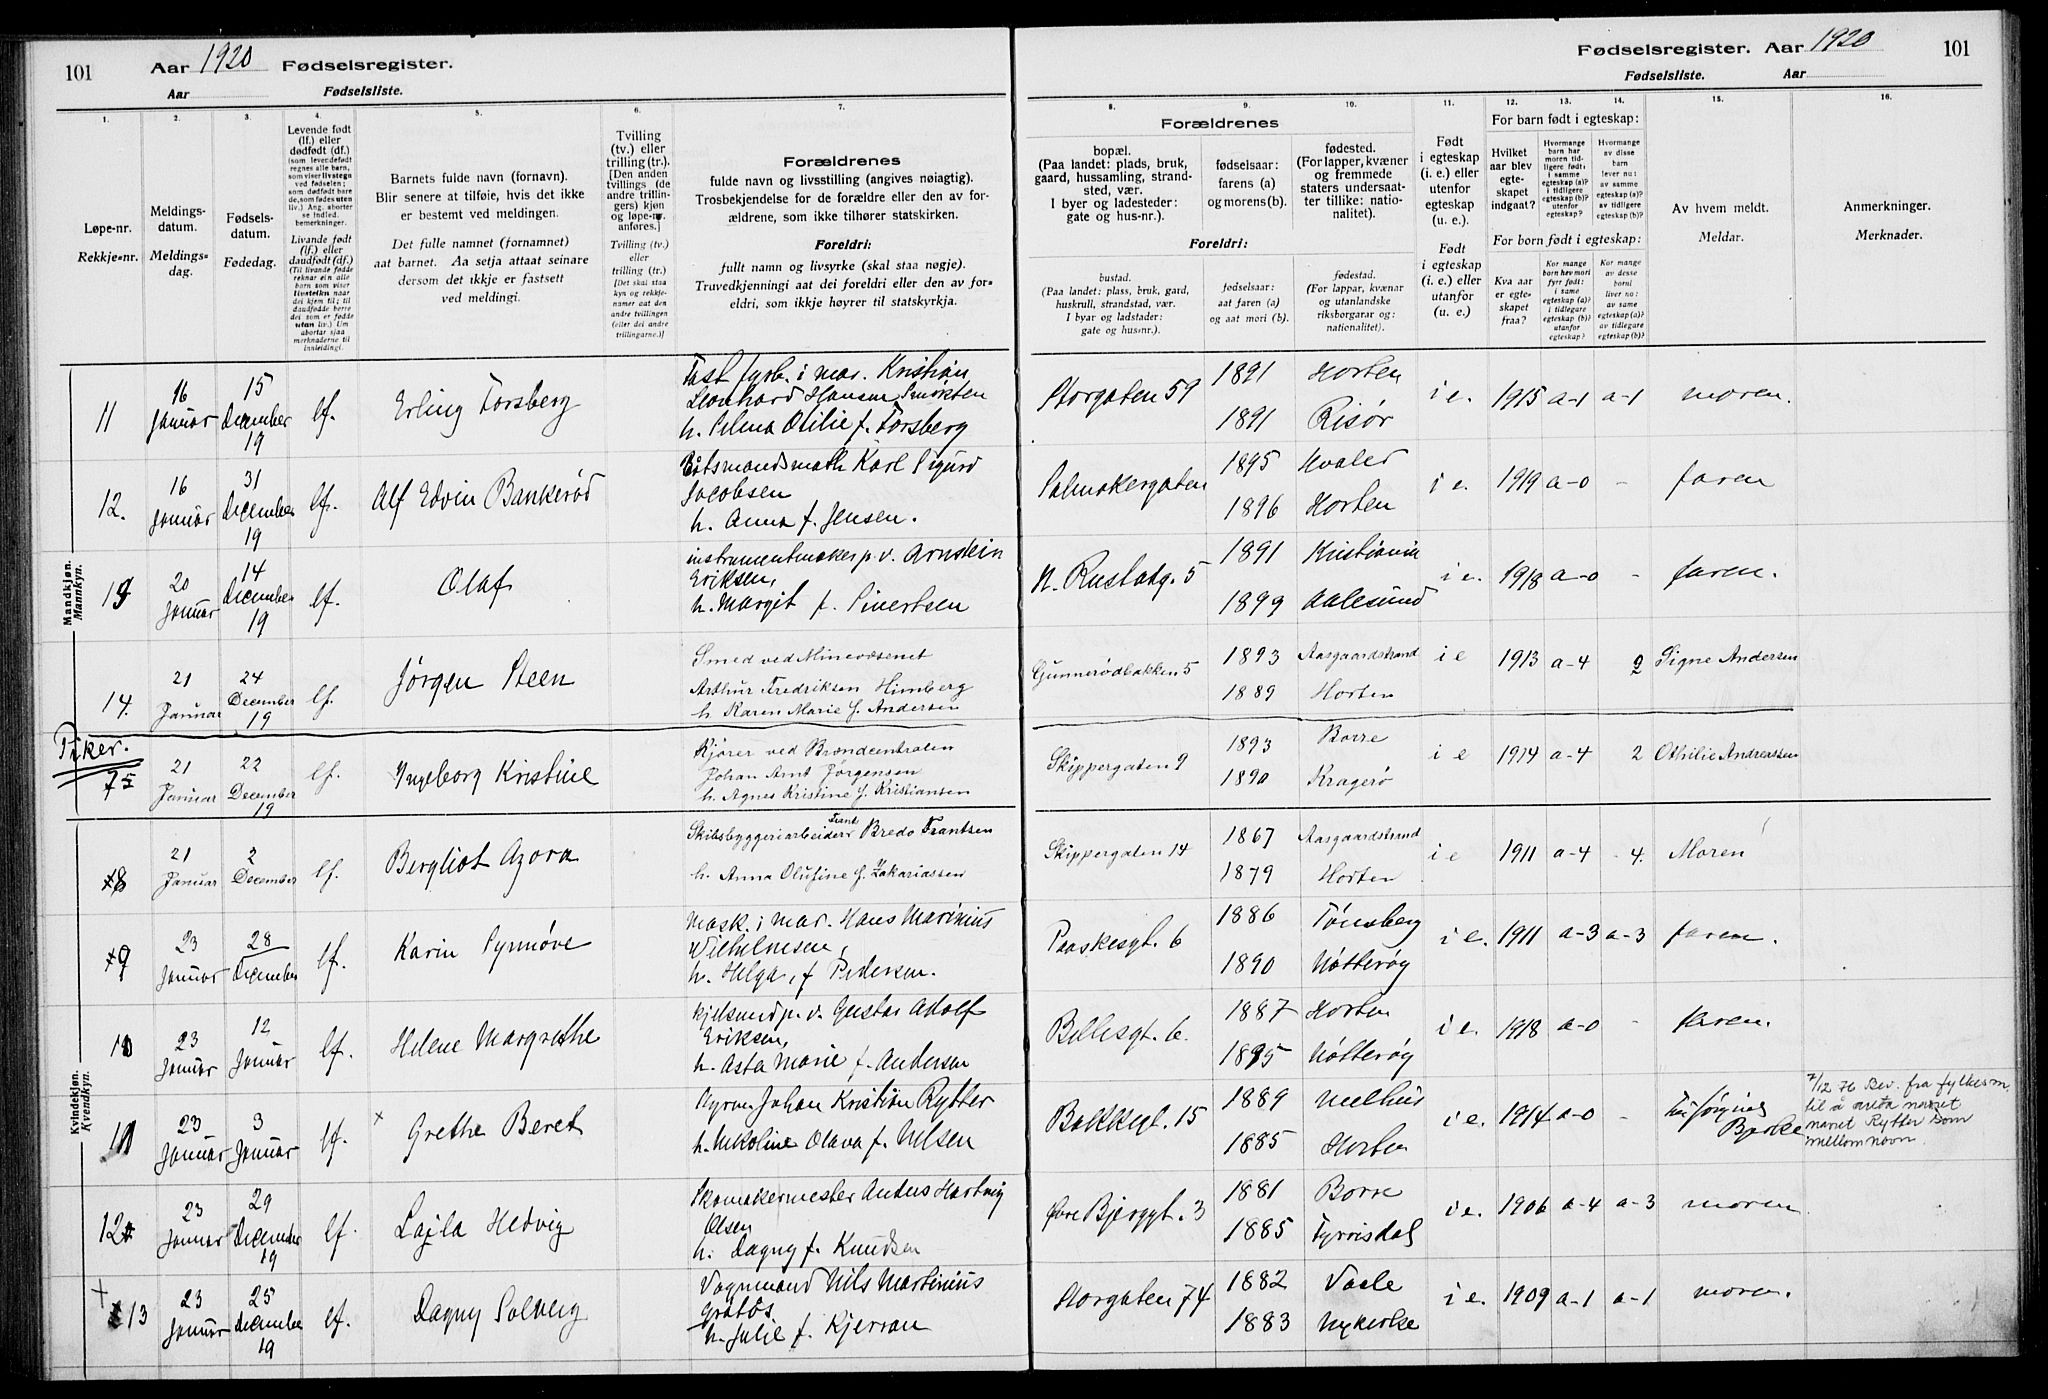 101 Aar 1920 Fødselsregister.
Aar Fødselsliste.
Fødselsregister. Aar 1920 101
Fødselsliste. Aar
1. 2. 3. 4. 5. 6. 7.
8. 9. 10. 11. 12. 13. 14. 15. 16.
Løpe-nr.
Rekkje-nr.
Meldings-
datum.
Meldings-
dag.
Fødsels-
datum.
Fødedag.
Levende født
(lf.) eller
dødfødt (df.)
Livande født
(lf.) eller
daudfødt (df.)
Barnets fulde navn (fornavn).
Blir senere at tilføie, hvis det ikke
er bestemt ved meldingen.
Det fulle namnet (fornamnet)
aat barnet. Aa setja attaat seinare
dersom det ikkje er fastsett
ved meldingi.
Tvilling
(tv.) eller
trilling (tr.).
[Den anden
tvillings (de
andre trillin-
gers) kjøn
og løpe-nr.
anføres.]
Tvilling (tv.)
eller
trilling (tr.)
[Det skal staa
kyn og rekkje-
numer aat den
andre tvillingen
(eller dei andre
trillingarne.)]
Forældrenes
fulde navn og livsstilling (angives nøiagtig).
Trosbekjendelse for de forældre eller den av for-
ældrene, som ikke tilhører statskirken.
Foreldri:
fullt namn og livsyrke (skal staa nøgje).
Truvedkjenningi aat dei foreldri eller den av for-
eldri, som ikkje høyrer til statskyrkja.
Forældrenes
bopæl.
(Paa landet: plads, bruk,
gaard, hussamling, strand-
sted, vær.
I byer og ladesteder:
gate og hus-nr.).
Foreldri:
bustad.
(Paa landet: plass, bruk, gard,
huskrull, strandstad, vær.
I byar og ladstader:
gate og hus-nr.).
fødselsaar:
farens (a)
og morens (b).
fødselsaar:
aat faren (a)
og aat mori (b).
fødested.
(For lapper, kvæner
og fremmede
staters undersaat-
ter tillike: natio-
nalitet).
fødestad.
(For lappar, kvænar
og utanlandske
riksborgarar og:
nationalitet).
Født
i egteskap
(i. e.) eller
utenfor
egteskap
(u. e.).
Født
i egteskap
(i. e.) eller
utanfor
(u. e.).
For barn født i egteskap:
Hvilket
aar blev
egte-
skapet
indgaat?
For born født i egteskap:
Kva aar
er egte-
skapet
fraa?
Av hvem meldt.
Meldar.
Anmerkninger.
Merknader.
Mandkjøn.
Mannkyn.
11 16 Januar 15 December 19 lf. Erling Forsberg
Fast fyrb. i mar. Kristian
Leonhard Hansen
h. Selma Otilie f. Forsberg
Storgaten 59 1891 Horten i e. 1915 a-1 a-1 moren.
1891 Risør
12. 16 Januar 31 December 19 lf. Alf Edvin Bankerød
Båtsmandsmath Karl Sigurd
Jacobsen
h. Anna f. Jensen.
1895 Hvaler i e. 1919 a-0 - faren
1896 Horten
13 20 Januar 14 December 19 lf. Olaf
instrumentmaker p. v. Arnstein
Eriksen,
h. Margit f. Sivertsen
N. Rustadg. 5 1891 Kristiania i e. 1918 a-0 - faren.
1899 Aalesund
14. 21 Januar 24 December 19 lf. Jørgen Steen
Smed ved Minevæsenet
Arthur Fredriksen Himberg
h. Karen Marie f. Andersen
Gunnerødbakken 5 1893 Aasgaardstrand i e 1913 a-4 2 Signe Andersen
1889 Horten
Piker.
75 21 Januar 22 December 19 lf. Ingeborg Kristine
Kjører ved Brændcentralen
Johan Arnt Jørgensen
h. Agnes Kristine f. Kristiansen
Skippergaten 9 1893 Borre i e 1914 a-4 2 Othilie Andreassen
1890 Kragerø
Kvindekjøn.
Kvendkyn.
8 21 Januar 2 December lf. Bergliot Azora
Skibsbyggeriarbeider Frants Bredo Frantsen
h. Anna Olufine f. Zakariassen
Skippergaten 14 1867 Aasgaardstrand i e 1911 a-4 - 4. Moren
1879 Horten
9 23 Januar 28 December lf. Karin Synnøve
Mask. i mar. Hans Marinius
Wilhelmsen,
h. Helga, f Pedersen.
Paaskesgt. 6 1886 Tønsberg i e. 1911 a-3 a-3 faren.
1890 Nøtterøy
10 23 Januar 12 Januar lf. Helene Margrethe
kjelsmed p. v. Gustav Adolf
Eriksen,
h. Asta Marie f. Andersen
Billesgt. 6. 1887 Horten i e. 1918 a-0 - faren.
1895 Nøtterøy
11 23 Januar 3 Januar lf. × Grethe Beret
Johan Kristian Rytter
h. Nikoline Olava f. Nilsen
Bakkegt. 15 1889 Melhus i e. 1914 a-0 -
1885 Horten
7/12 76 Bev. fra fylkesm.
til å anta navnet
navnet Rytter som
mellomnavn.
12 23 Januar 29 December 19 lf. Lajla Hedvig
Skomakermester Anders Hartvig
Olsen
h. Dagny f. Knudsen
Øvre Bjerggt. 3 1881 Borre i e. 1906 a-4 a-3 moren
1885 Fyrrisdal
+ 13 23 Januar 25 December 19 lf. Dagny Solveig
Vognmand Nils Martinius
Gråtås
h. Julie f. Kjerran
Storgaten 74 1882 Vaale i e. 1909 a-1 a-1 moren.
1883 Nykirke